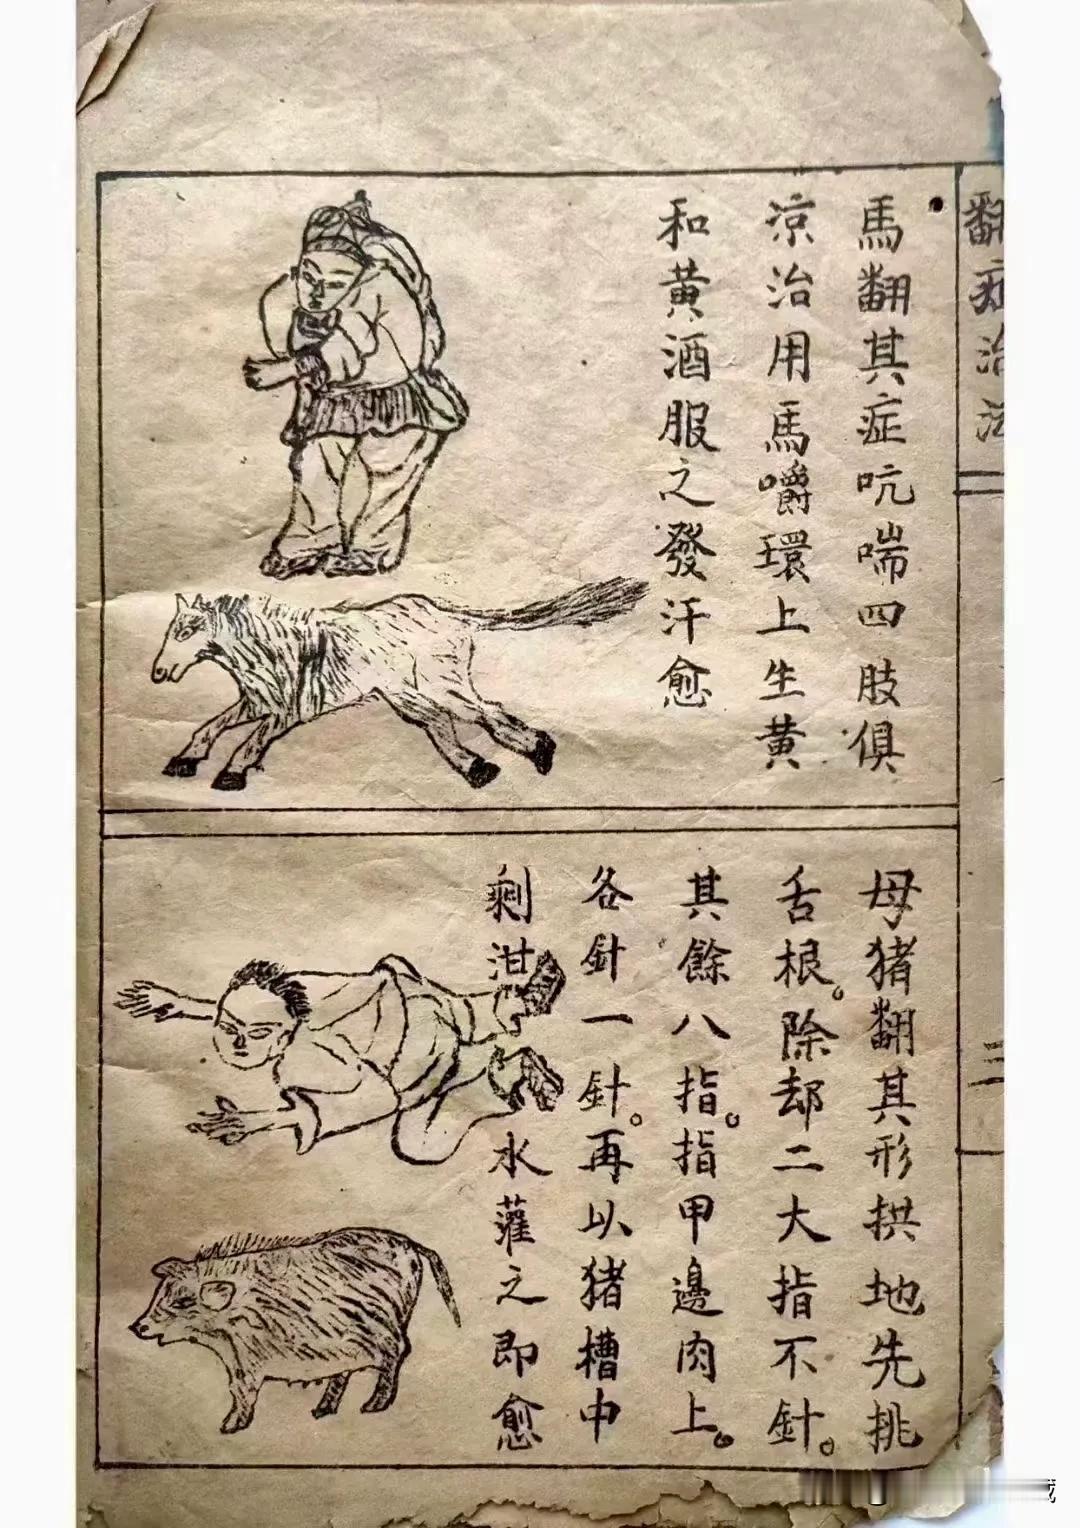 翻症治法
三
馬翻其症吭喘四肢俱
凉治用馬嚼環上生黄
和黄酒服之發汗愈
母猪翻其形拱地先挑
舌根。除却二大指不針。
其餘八指。指甲邊肉上。
各針一針。再以猪槽中
剩泔水灌之即愈